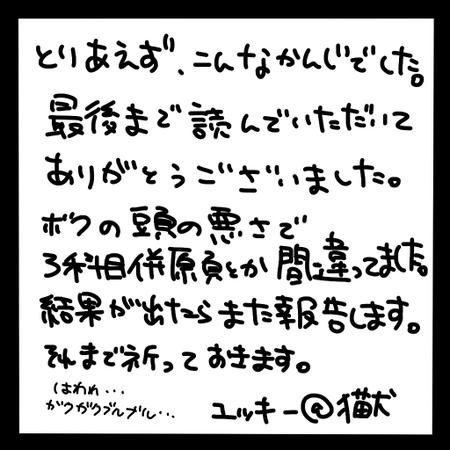 とりあえず、こんなかんじでした。
最後まで読んでいただいて
ありがとうございました。
ボクの頭の悪さで
3科目併願とか間違ってました。
結果が出たらまた報告します。
それまで祈っておきます。
(はわわ・・・
ガクガクブルブル・・・
ユッキー@猫犬